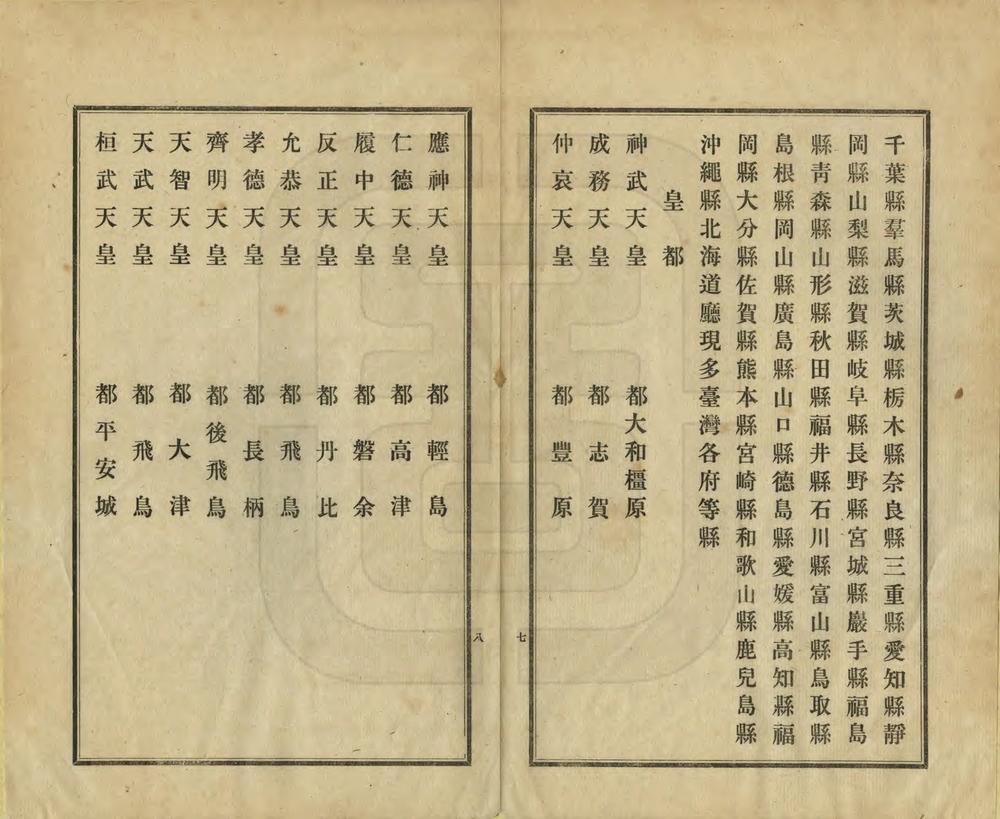 千葉縣羣馬縣茨城縣栃木縣奈良縣三重縣愛知縣靜
岡縣山梨縣滋賀縣岐阜縣長野縣宮城縣巖手縣福島
縣青森縣山形縣秋田縣福井縣石川縣富山縣鳥取縣
島根縣岡山縣廣島縣山口縣德島縣愛媛縣高知縣福
岡縣大分縣佐賀縣熊本縣宮崎縣和歌山縣鹿兒島縣
沖繩縣北海道廳現多臺灣各府等縣
皇都
神武天皇 都大和橿原
成務天皇 都志賀
仲哀天皇 都豐原
七
應神天皇 都輕島
仁德天皇 都高津
履中天皇 都磐余
反正天皇 都丹比
允恭天皇 都飛鳥
孝德天皇 都長柄
齊明天皇 都後飛鳥
天智天皇 都大津
天武天皇 都飛鳥
桓武天皇 都平安城
八